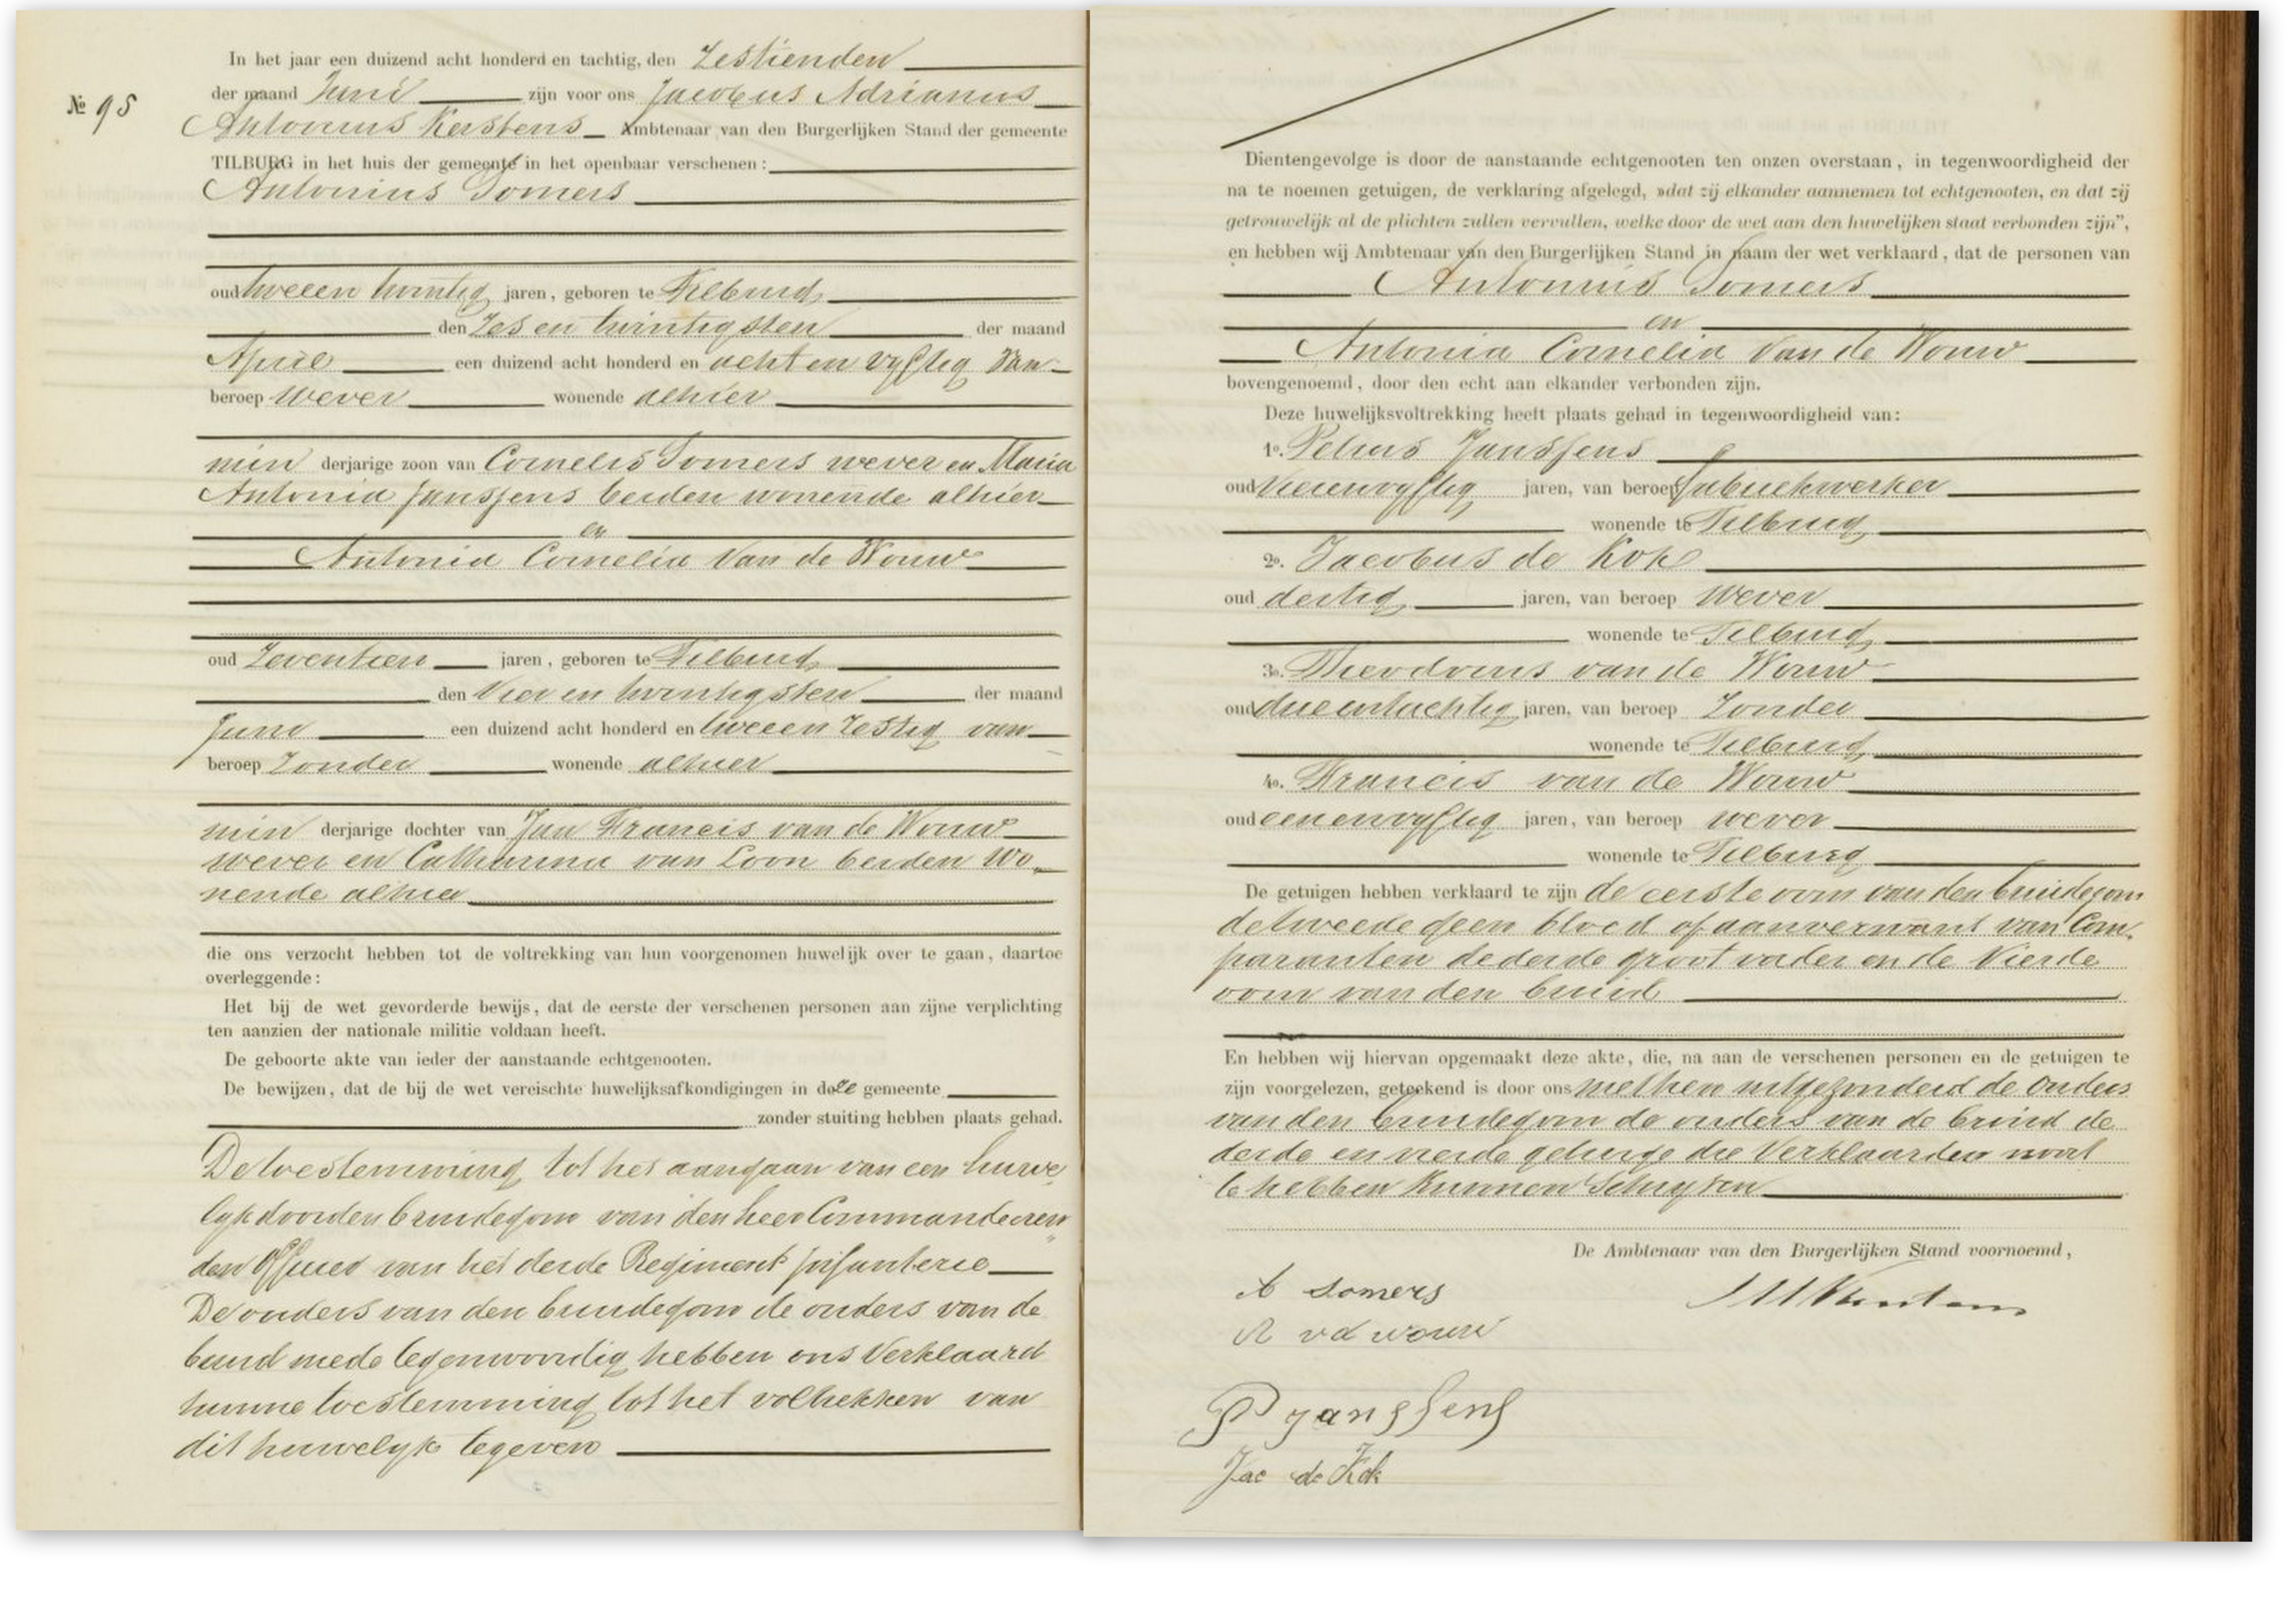 In het jaar een duizend acht honderd en tachtig, den Zestienden
der maand Juni zijn voor ons Jacobus Adrianus
№ 95
Antonius Kerstens Ambtenaar van den Burgerlijken Stand der gemeente
TILBURG in het huis der gemeente in het openbaar verschenen:
Antonius Somers
oud tweeen twintig jaren, geboren te Tilburg
den Zes en twintigsten der maand
April een duizend acht honderd en acht en vyftig van
beroep wever wonende alhier
min derjarige zoon van Cornelis Somers wever en Maria
Antonia Janssens beiden wonende alhier
en
Antonia Cornelia Van de Wouw
oud Zeventien jaren, geboren te Tilburg
den Vier en twintigsten der maand
Juni een duizend acht honderd en tweeen Zestig van
beroep Zonder wonende alhier
min derjarige dochter van Jan Francis van de Wouw
wever en Catharina van Loon beiden wo
nende alhier
die ons verzocht hebben tot de voltrekking van hun voorgenomen huwelijk over te gaan, daartoe
overleggende:
Het bij de wet gevorderde bewijs, dat de eerste der verschenen personen aan zijne verplichting
ten aanzien der nationale militie voldaan heeft.
De geboorte akte van ieder der aanstaande echtgenooten.
De bewijzen, dat de bij de wet vereischte huwelijksafkondigingen in deze gemeente
zonder stuiting hebben plaats gehad.
De toestemming tot het aangaan van een huwe
lyk door den bruidegom van den heer Commandeeren
den Officier van het derde Regiment Infanterie
De ouders van den bruidegom de ouders van de
bruid mede tegenwoordig hebben ons Verklaard
hunne toestemming tot het voltrekken van
dit huwelyk tegeven
Dientengevolge is door de aanstaande echtgenooten ten onzen overstaan, in tegenwoordigheid der
na te noemen getuigen, de verklaring afgelegd, »dat zij elkander aannemen tot echtgenooten, en dat zij
getrouwelijk al de plichten zullen vervullen, welke door de wet aan den huwelijken staat verbonden zijn”,
en hebben wij Ambtenaar van den Burgerlijken Stand in naam der wet verklaard, dat de personen van
Antonius Somers
en
Antonia Cornelia Van de Wouw
bovengenoemd, door den echt aan elkander verbonden zijn.
Deze huwelijksvoltrekking heeft plaats gehad in tegenwoordigheid van:
1o. Petrus Janssens
oud vierenvyftig jaren, van beroep fabriekwerker
wonende te Tilburg
2o. Jacobus de Kok
oud dertig jaren, van beroep wever
wonende te Tilburg
3o. Theodorus van de Wouw
oud drieentachtig jaren, van beroep Zonder
wonende te Tilburg
4o. Francis van de Wouw
oud eenenvyftig jaren, van beroep wever
wonende te Tilburg
De getuigen hebben verklaard te zijn de eerste oom van den bruidegom
de tweede geen bloed of aanverwant van Com
paranten de derde grootvader en de Vierde
oom van den bruid
En hebben wij hiervan opgemaakt deze akte, die, na aan de verschenen personen en de getuigen te
zijn voorgelezen, geteekend is door ons met hen uitgezonderd de ouders
van den bruidegom de ouders van de bruid de
derde en vierde getuige die Verklaarden nooit
te hebben kunnen Schryven
De Ambtenaar van den Burgerlijken Stand voornoemd,
A Somers
A vd wouw
P Janssens
Jac de Kok